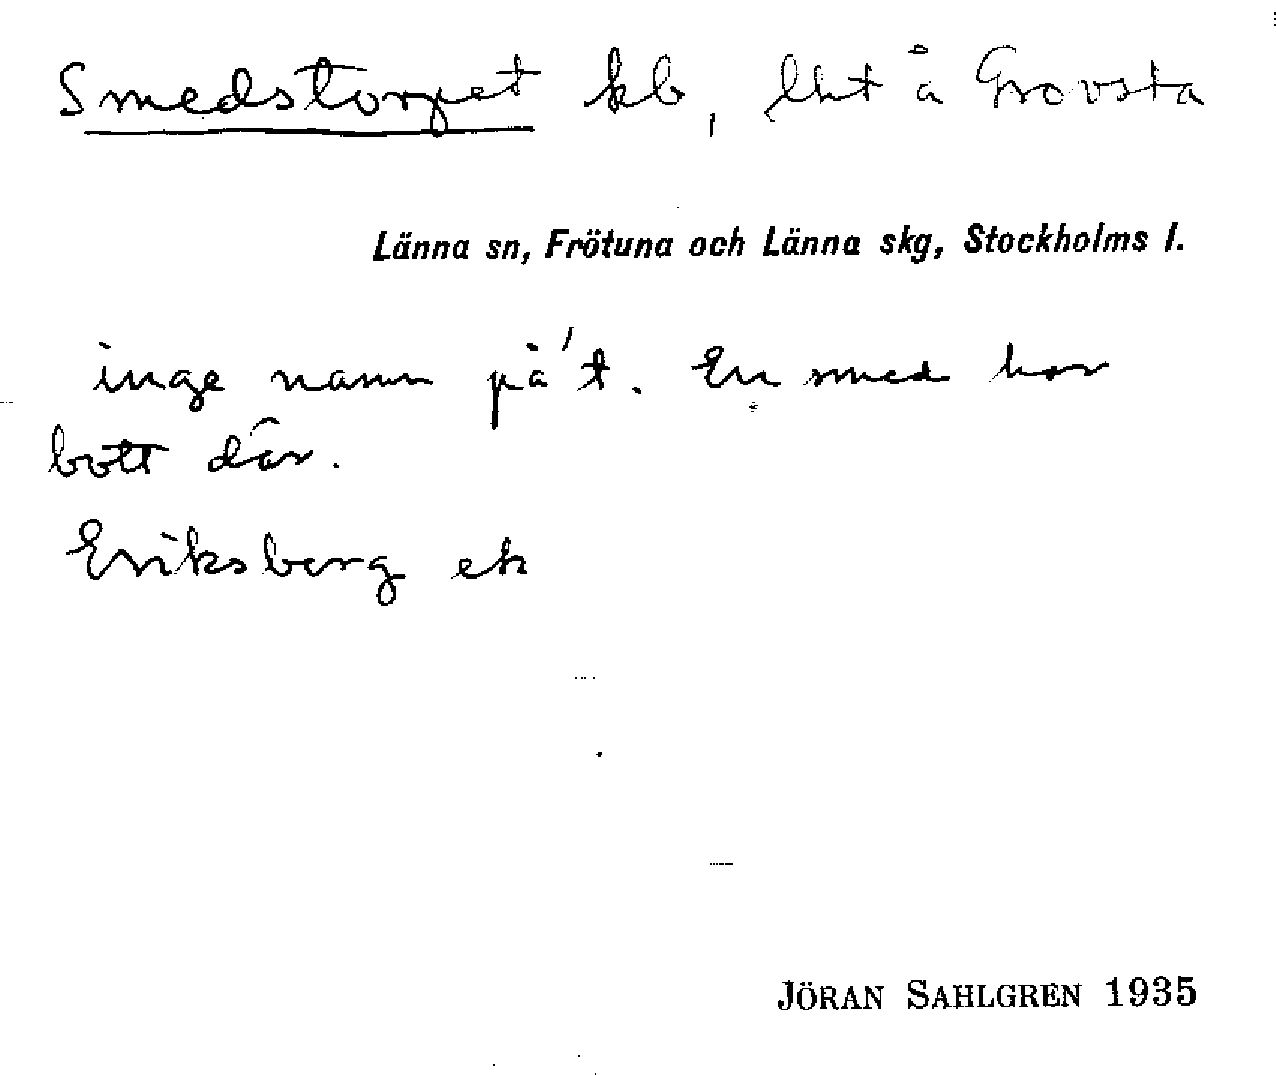 Smedstorpet kb, lht å Grovsta
Länna sn, Frötuna och Länna skg, Stockholms l.
inge namn på't. En smed har
bott där.
Eriksberg ek
JÖRAN SAHLGREN 1935